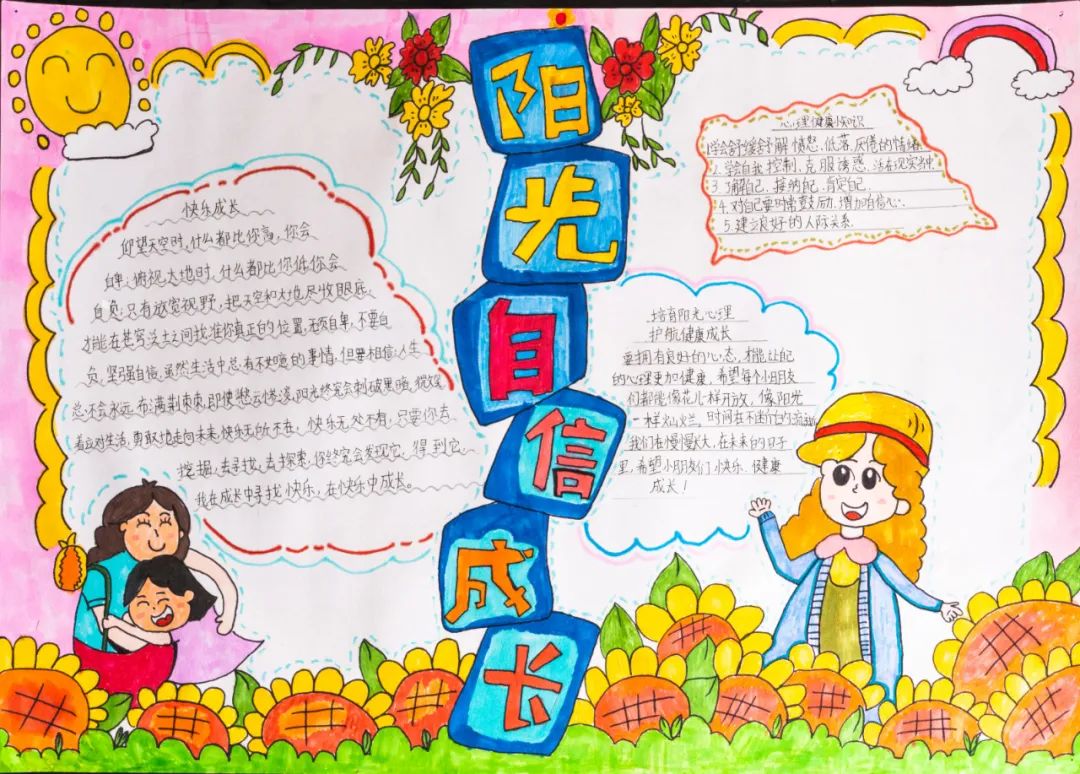 阳光自信成长
快乐成长
仰望天空时，什么都比你高，你会
自卑；俯视大地时，什么都比你低，你会
自负；只有放宽视野，把天空和大地尽收眼底，
才能在苍穹泛土之间找准你真正的位置，无须自卑，不要自
负，坚强自信，虽然生活中总有不如意的事情，但要相信：人生
总不会永远布满荆棘，即使愁云惨淡，阳光终究会刺破黑暗，
着应对生活，勇敢地走向未来，快乐无所不在，快乐无处不有，只要你去
挖掘，去寻找，去探索，你终究会发现它，得到它，
我在成长中寻找快乐，在快乐中成长。
心理健康小知识
1.学会舒缓舒解愤怒、低落、厌倦的情绪
2.学会自我控制，克服诱惑，活在现实当中
3.了解自己，接纳自己，肯定自己，
4.对自己要时常鼓励，增加自信心.
5.建立良好的人际关系.
培育阳光心理
护航健康成长
要拥有良好的心态，才能让自己
的心理更加健康，希望每个小朋友
们都能像花儿一样开放，像阳光
一样灿烂，时间在不断的流逝
我们在慢慢长大，在未来的日子
里，希望小朋友们快乐、健康
成长！